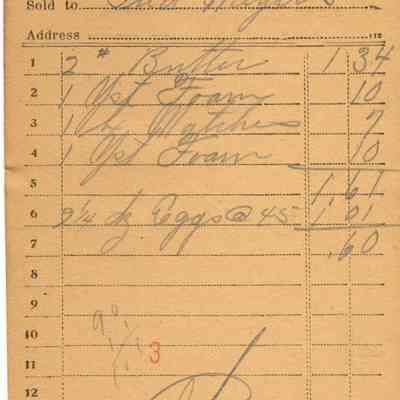 Sold to Meyers
Address
1 2 # Butter 1 34
2 1 Yst Foam 10
3 1 Matches 7
4 1 Yst Foam 10
5 1.61
6 2 1/4 dz Eggs @ 45 1 01
7 .60
8
9
10
11 3
12